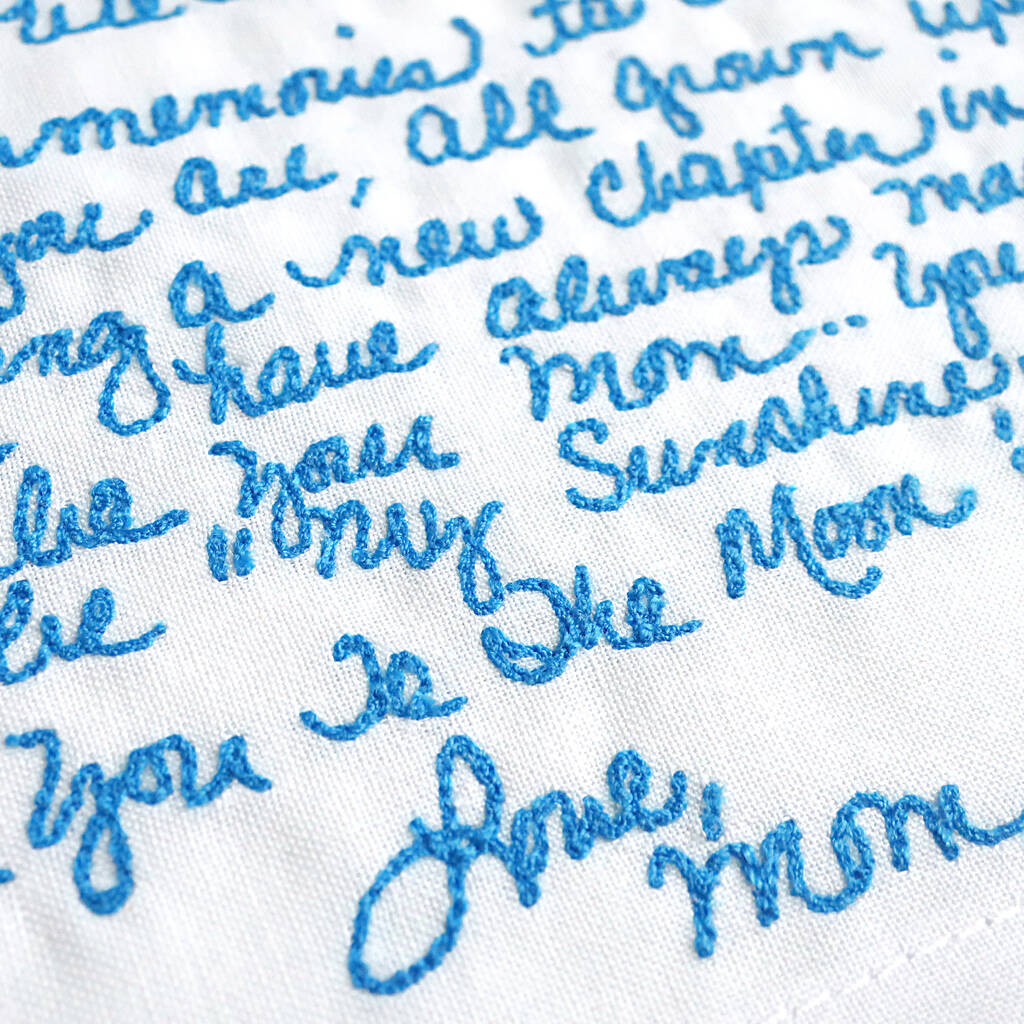 memories to
you are, all grown up
ng a new Chapter in
have always ma
be your Mom... you
be "my Sunshine"
you to the Moon
Love, Mom